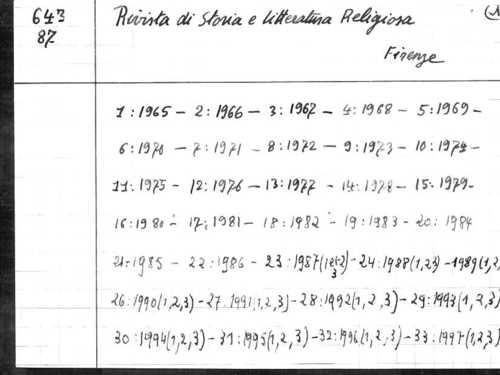 643
87
Rivista di Storia e Litteratura Religiosa
Firenze
1:1965 - 2:1966 - 3:1967 - 4:1968 - 5:1969 -
6:1970 - 7:1971 - 8:1972 - 9:1973 - 10:1974 -
11:1975 - 12:1976 - 13:1977 - 14:1978 - 15:1979 -
16:1980 - 17:1981 - 18:1982 - 19:1983 - 20:1984
21:1985 - 22:1986 - 23:1987 - 24:1988(1,2,3) - 1989(1,2,
26:1990(1,2,3) - 27:1991(1,2,3) - 28:1992(1,2,3) - 29:1993(1,2,3)
30:1994(1,2,3) - 31:1995(1,2,3) - 32:1996(1,2,3) - 33:1997(1,2,3)